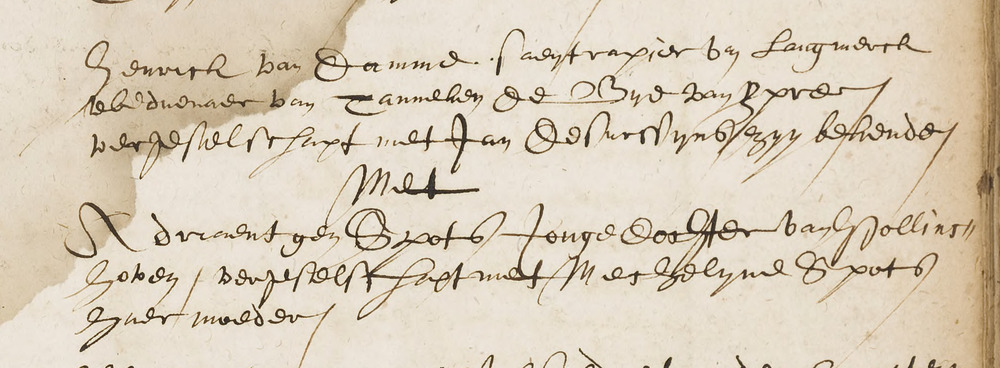 Henrick van Damme saeytrapier van Langmerck
weduenaer van Tanneken de Bije van Ypre
vergeselschapt met Jan zijn bekende
Met
Adriaentgen Spots Jonge dochter van Hollinc-
hoven / vergeselschapt met Mechelyne Spots
huer moeder